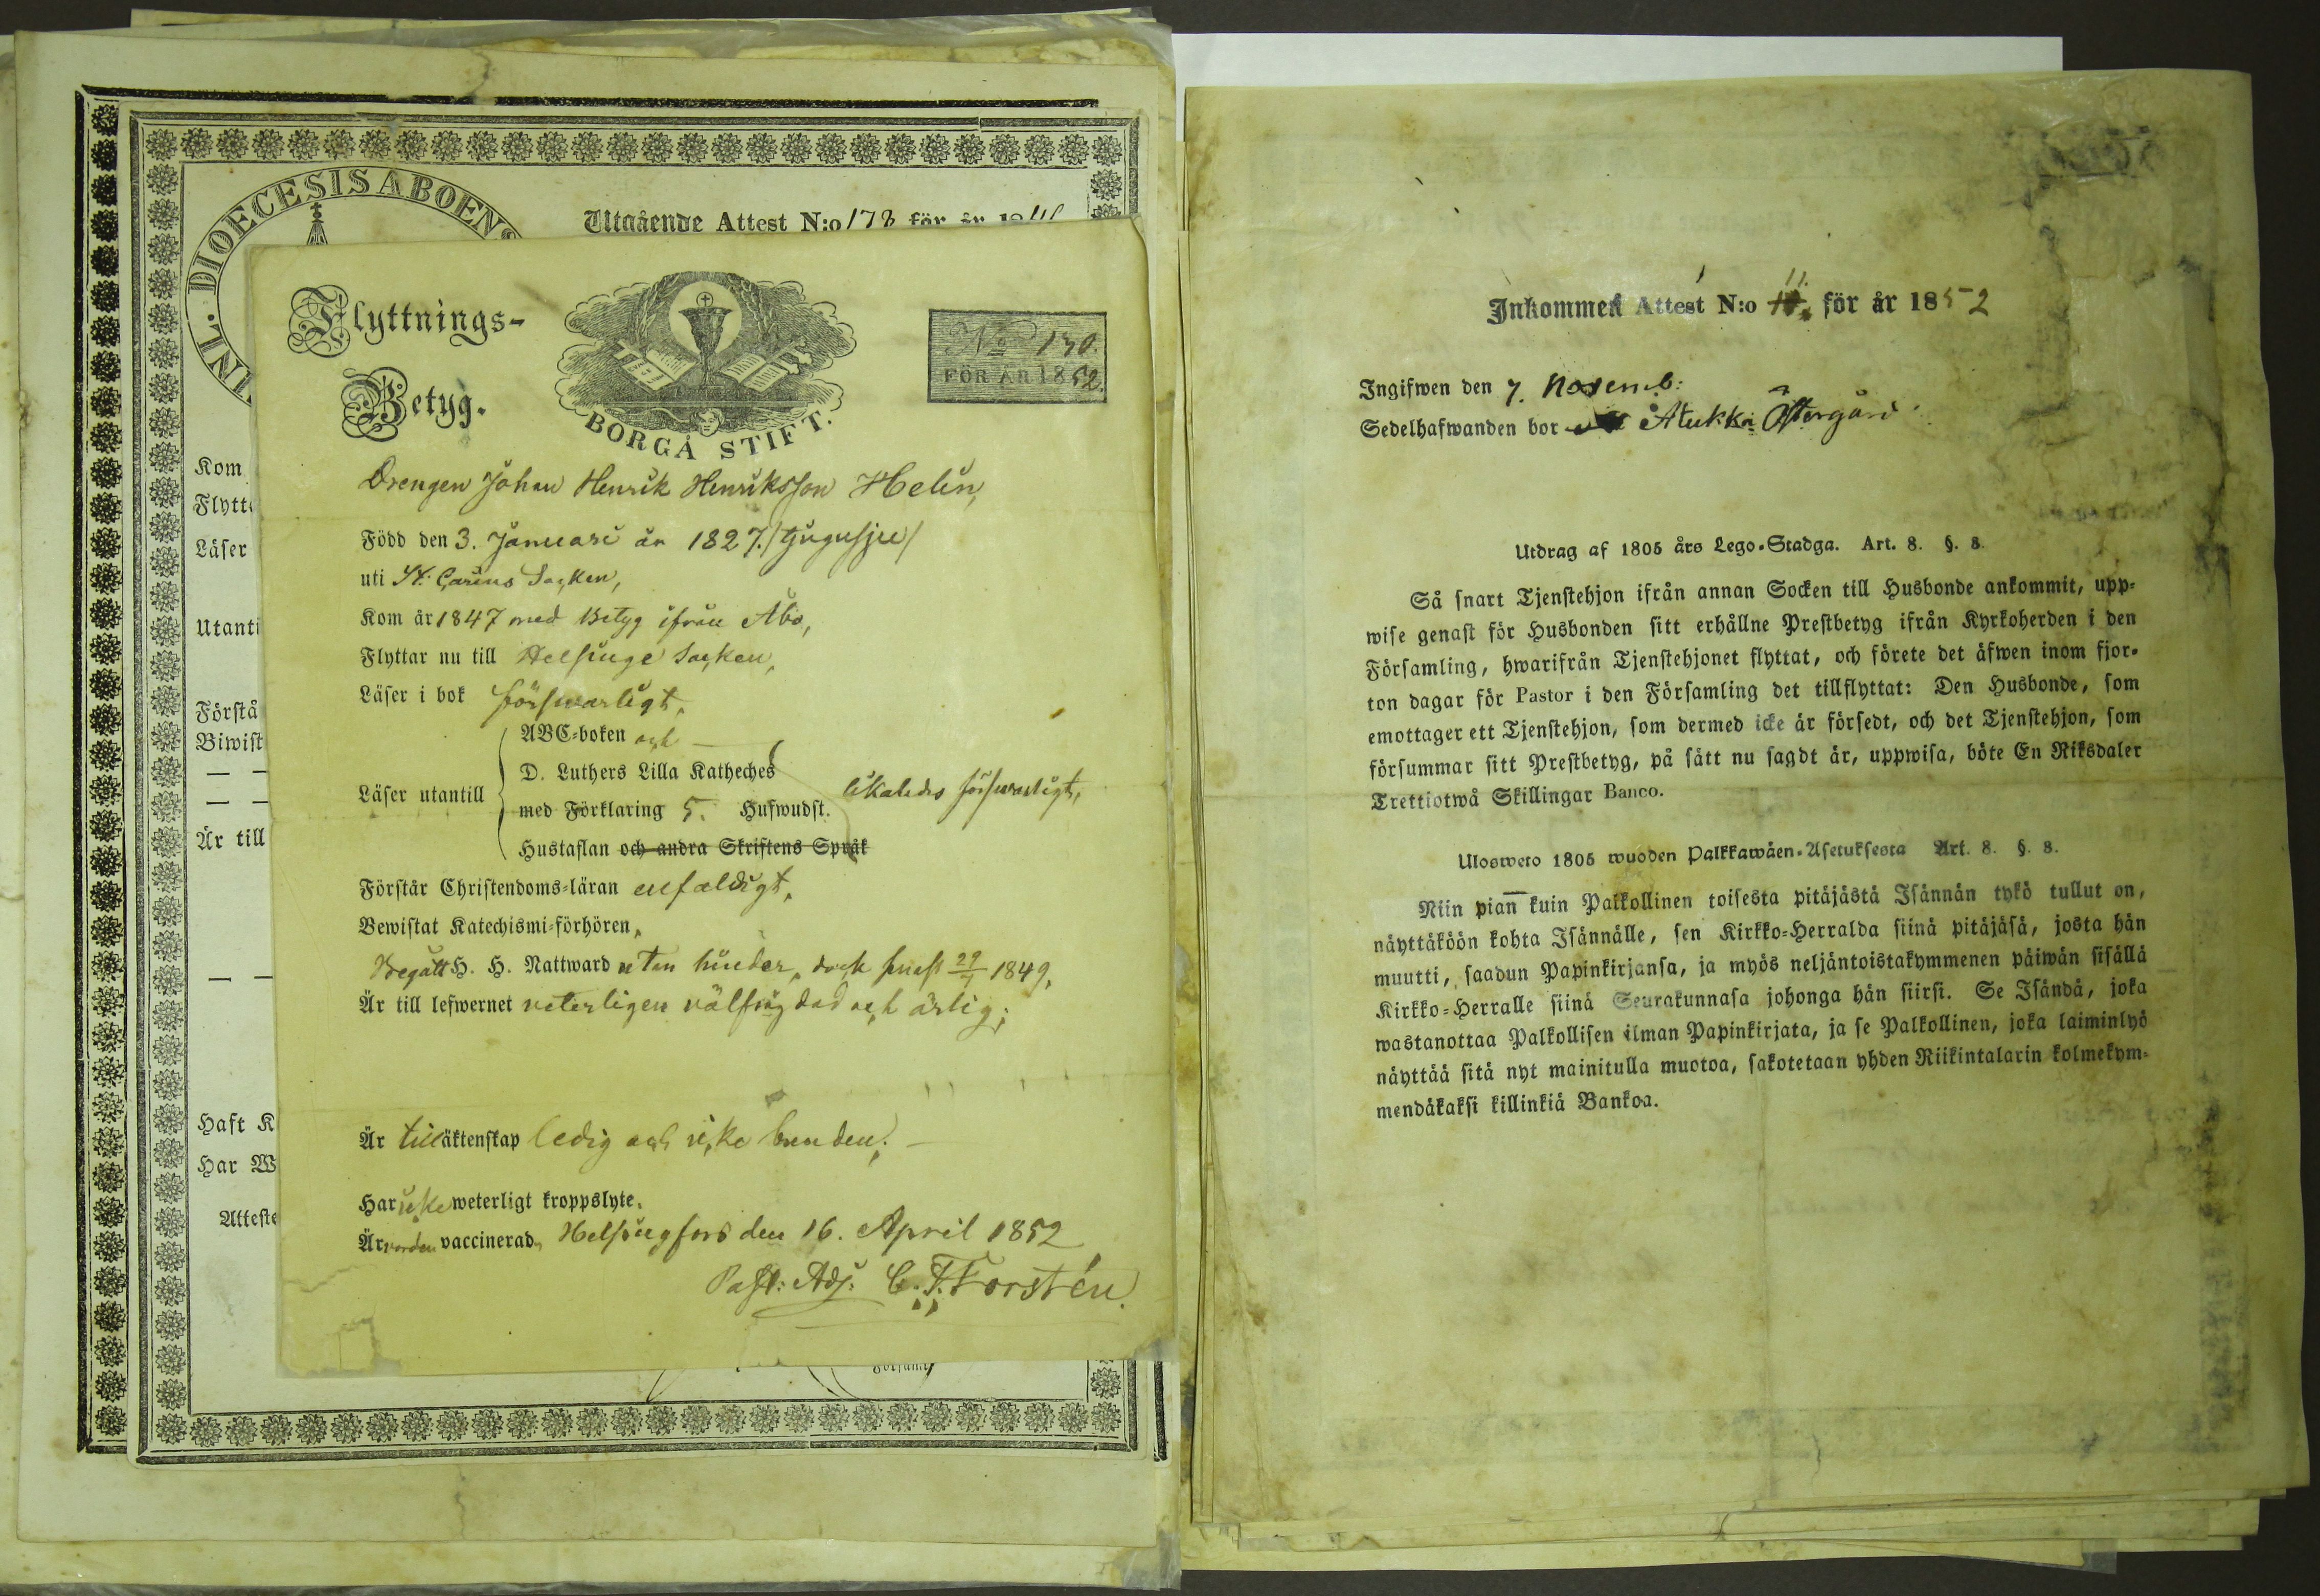 DIOECESIS ABOENS
INL.
Utgående Attest N:o 178 för år 18
Kom
Flytt
Läser
Utanti
Förstå
Biwist
Är till
Haft K
Har W
Atteste
Flyttnings-
Betyg.
BORGÅ STIFT.
No 130.
FÖR ÅR 1852.
Drengen Johan Henrik Henriksson Helin,
Född den 3. Januari år 1827. /tjugusju/
uti St. Carins Socken,
Kom år 1847 med Betyg ifrån Åbo,
Flyttar nu till Helsinge Socken,
Läser i bok försvarligt,
Läser utantill
ABC-boken och
D. Luthers Lilla Katheches
med Förklaring 5. Hufwudst.
Hustaflan och andra Skriftens Språk
likaledes försvarligt,
Förstår Christendoms-läran enfaldigt,
Bewistat Katechismi-förhören,
Begått H. H. Nattward utan hinder, dock senast 29/7 1849,
Är till lefwernet veterligen välfrägdad och ärlig;
Är till äktenskap ledig och icke bunden;
Har icke weterligt kroppslyte,
Är worden vaccinerad, Helsingfors den 16. April 1852
Past: Adj. C. F. Forstén.
Församl
Inkommen Attest N:o 11. för år 1852
Ingifwen den 7. Novemb:
Sedelhafwanden bor Östergård
Utdrag af 1805 års Lego-Stadga. Art. 8. §. 8.
Så snart Tjenstehjon ifrån annan Socken till Husbonde ankommit, upp-
wise genast för Husbonden sitt erhållne Prestbetyg ifrån Kyrkoherden i den
Församling, hwarifrån Tjenstehjonet flyttat, och förete det äfwen inom fjor-
ton dagar för Pastor i den Församling det tillflyttat: Den Husbonde, som
emottager ett Tjenstehjon, som dermed icke är försedt, och det Tjenstehjon, som
försummar sitt Prestbetyg, på sätt nu sagdt är, uppwisa, böte En Riksdaler
Trettiotwå Skillingar Banco.
Ulosweto 1805 wuoden Palkkawäen-Asetuksesta Art. 8. §. 8.
Niin pian̄ kuin Palkollinen toisesta pitäjästä Isännän tykö tullut on,
näyttäköön kohta Isännälle, sen Kirkko-Herralda siinä pitäjäsä, josta hän
muutti, saadun Papinkirjansa, ja myös neljäntoistakymmenen päiwän sisällä
Kirkko-Herralle siinä Seurakunnasa johonga hän siirsi. Se Isändä, joka
wastanottaa Palkollisen ilman Papinkirjata, ja se Palkollinen, joka laiminlyö
näyttää sitä nyt mainitulla muotoa, sakotetaan yhden Riikintalarin kolmekym-
mendäkaksi killinkiä Bankoa.